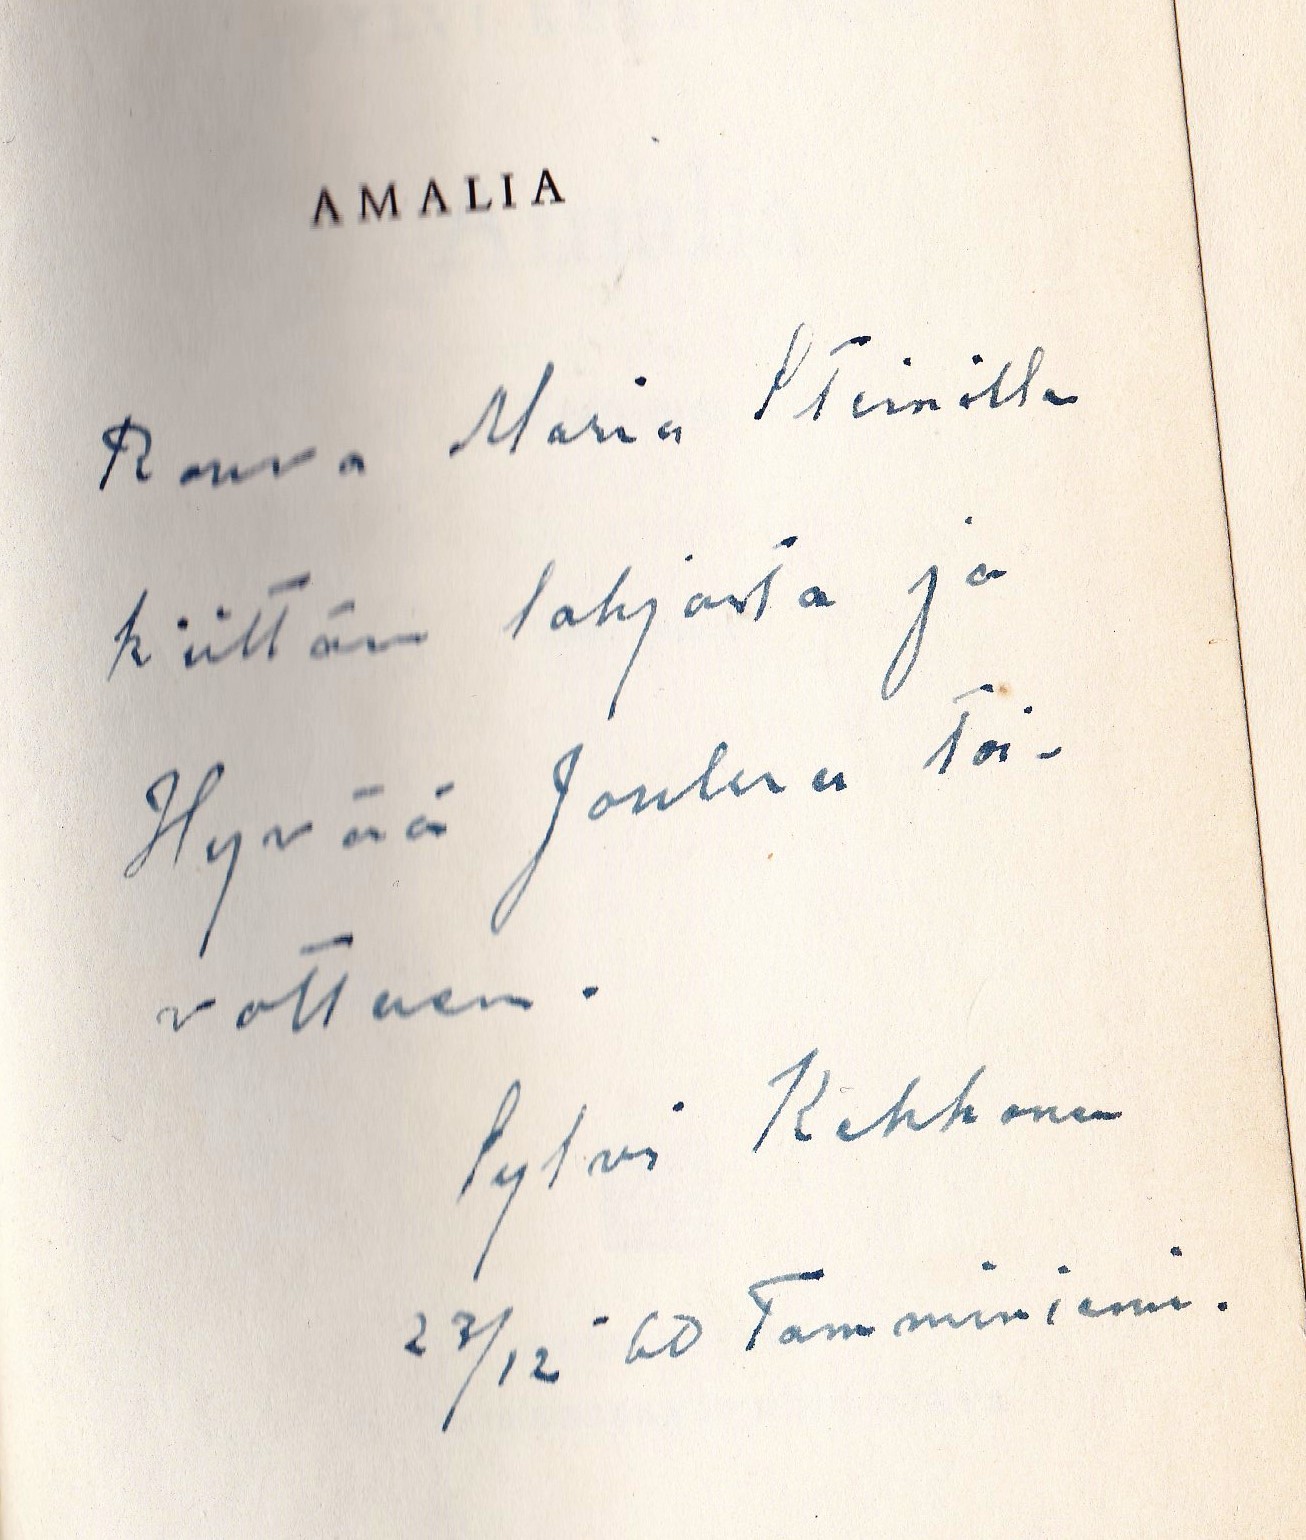 AMALIA
Rouva Maria Steinille
kiittäen lahjasta ja
Hyvää Joulua toi-
vottaen.
Sylvi Kekkonen
23/12 -60 Tamminiemi.